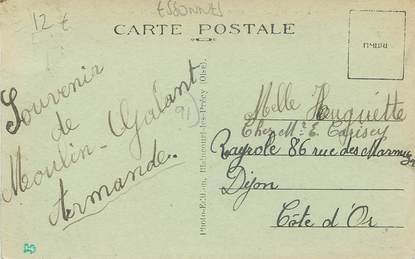 12 €
ESSONNES
CARTE POSTALE
TIMBRE
Souvenir
de
Moulin-Galant
Armande.
91)
Photo-Edition, Bláncourt-lès-Précy (Oise).
Melle Huguette
Chez Mr E.
Rayrole 86 rue des
Dijon
Côte d'Or